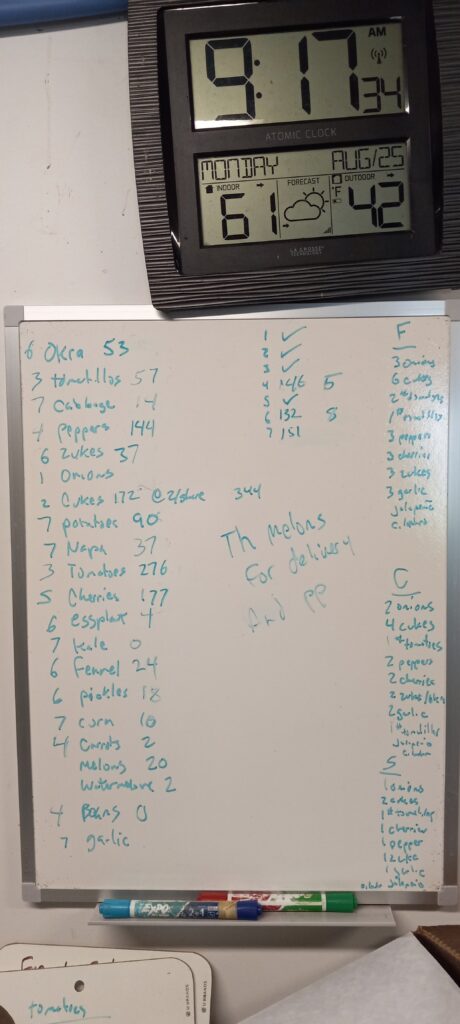 AM
9:17 34
ATOMIC CLOCK
MONDAY AUG/25
INDOOR FORECAST OUTDOOR
61 °F 42
LA CROSSE
TECHNOLOGY
6 Okra 53
3 tomatillos 57
7 Cabbage 14
4 Peppers 144
6 Zukes 37
1 Onions
2 Cukes 172 @2/share 344
7 potatoes 90
7 Napa 37
3 Tomatoes 276
5 Cherries 177
6 eggplant 4
7 kale 0
6 Fennel 24
6 pickles 18
7 corn 10
4 Carrots 2
Melons 20
Watermelons 2
4 Beans 0
7 garlic
1 ✓
2 ✓
3 ✓
4 146 5
5 ✓
6 132 5
7 151
Th melons
For delivery
And PP
F
3 onions
6 cukes
2# tomatoes
1# tomatillos
3 peppers
3 cherries
3 zukes
3 garlic
jalapeño
cilantro
C
2 onions
4 cukes
1# tomatoes
2 peppers
2 cherries
2 zukes/
2 garlic
1# tomatillos
Jalapeño
cilantro
S
1 onions
2 cukes
1#
1 cherries
1 pepper
1 zuke
1 garlic
cilantro jalapeño
EXPO
EXPO
tomatoes